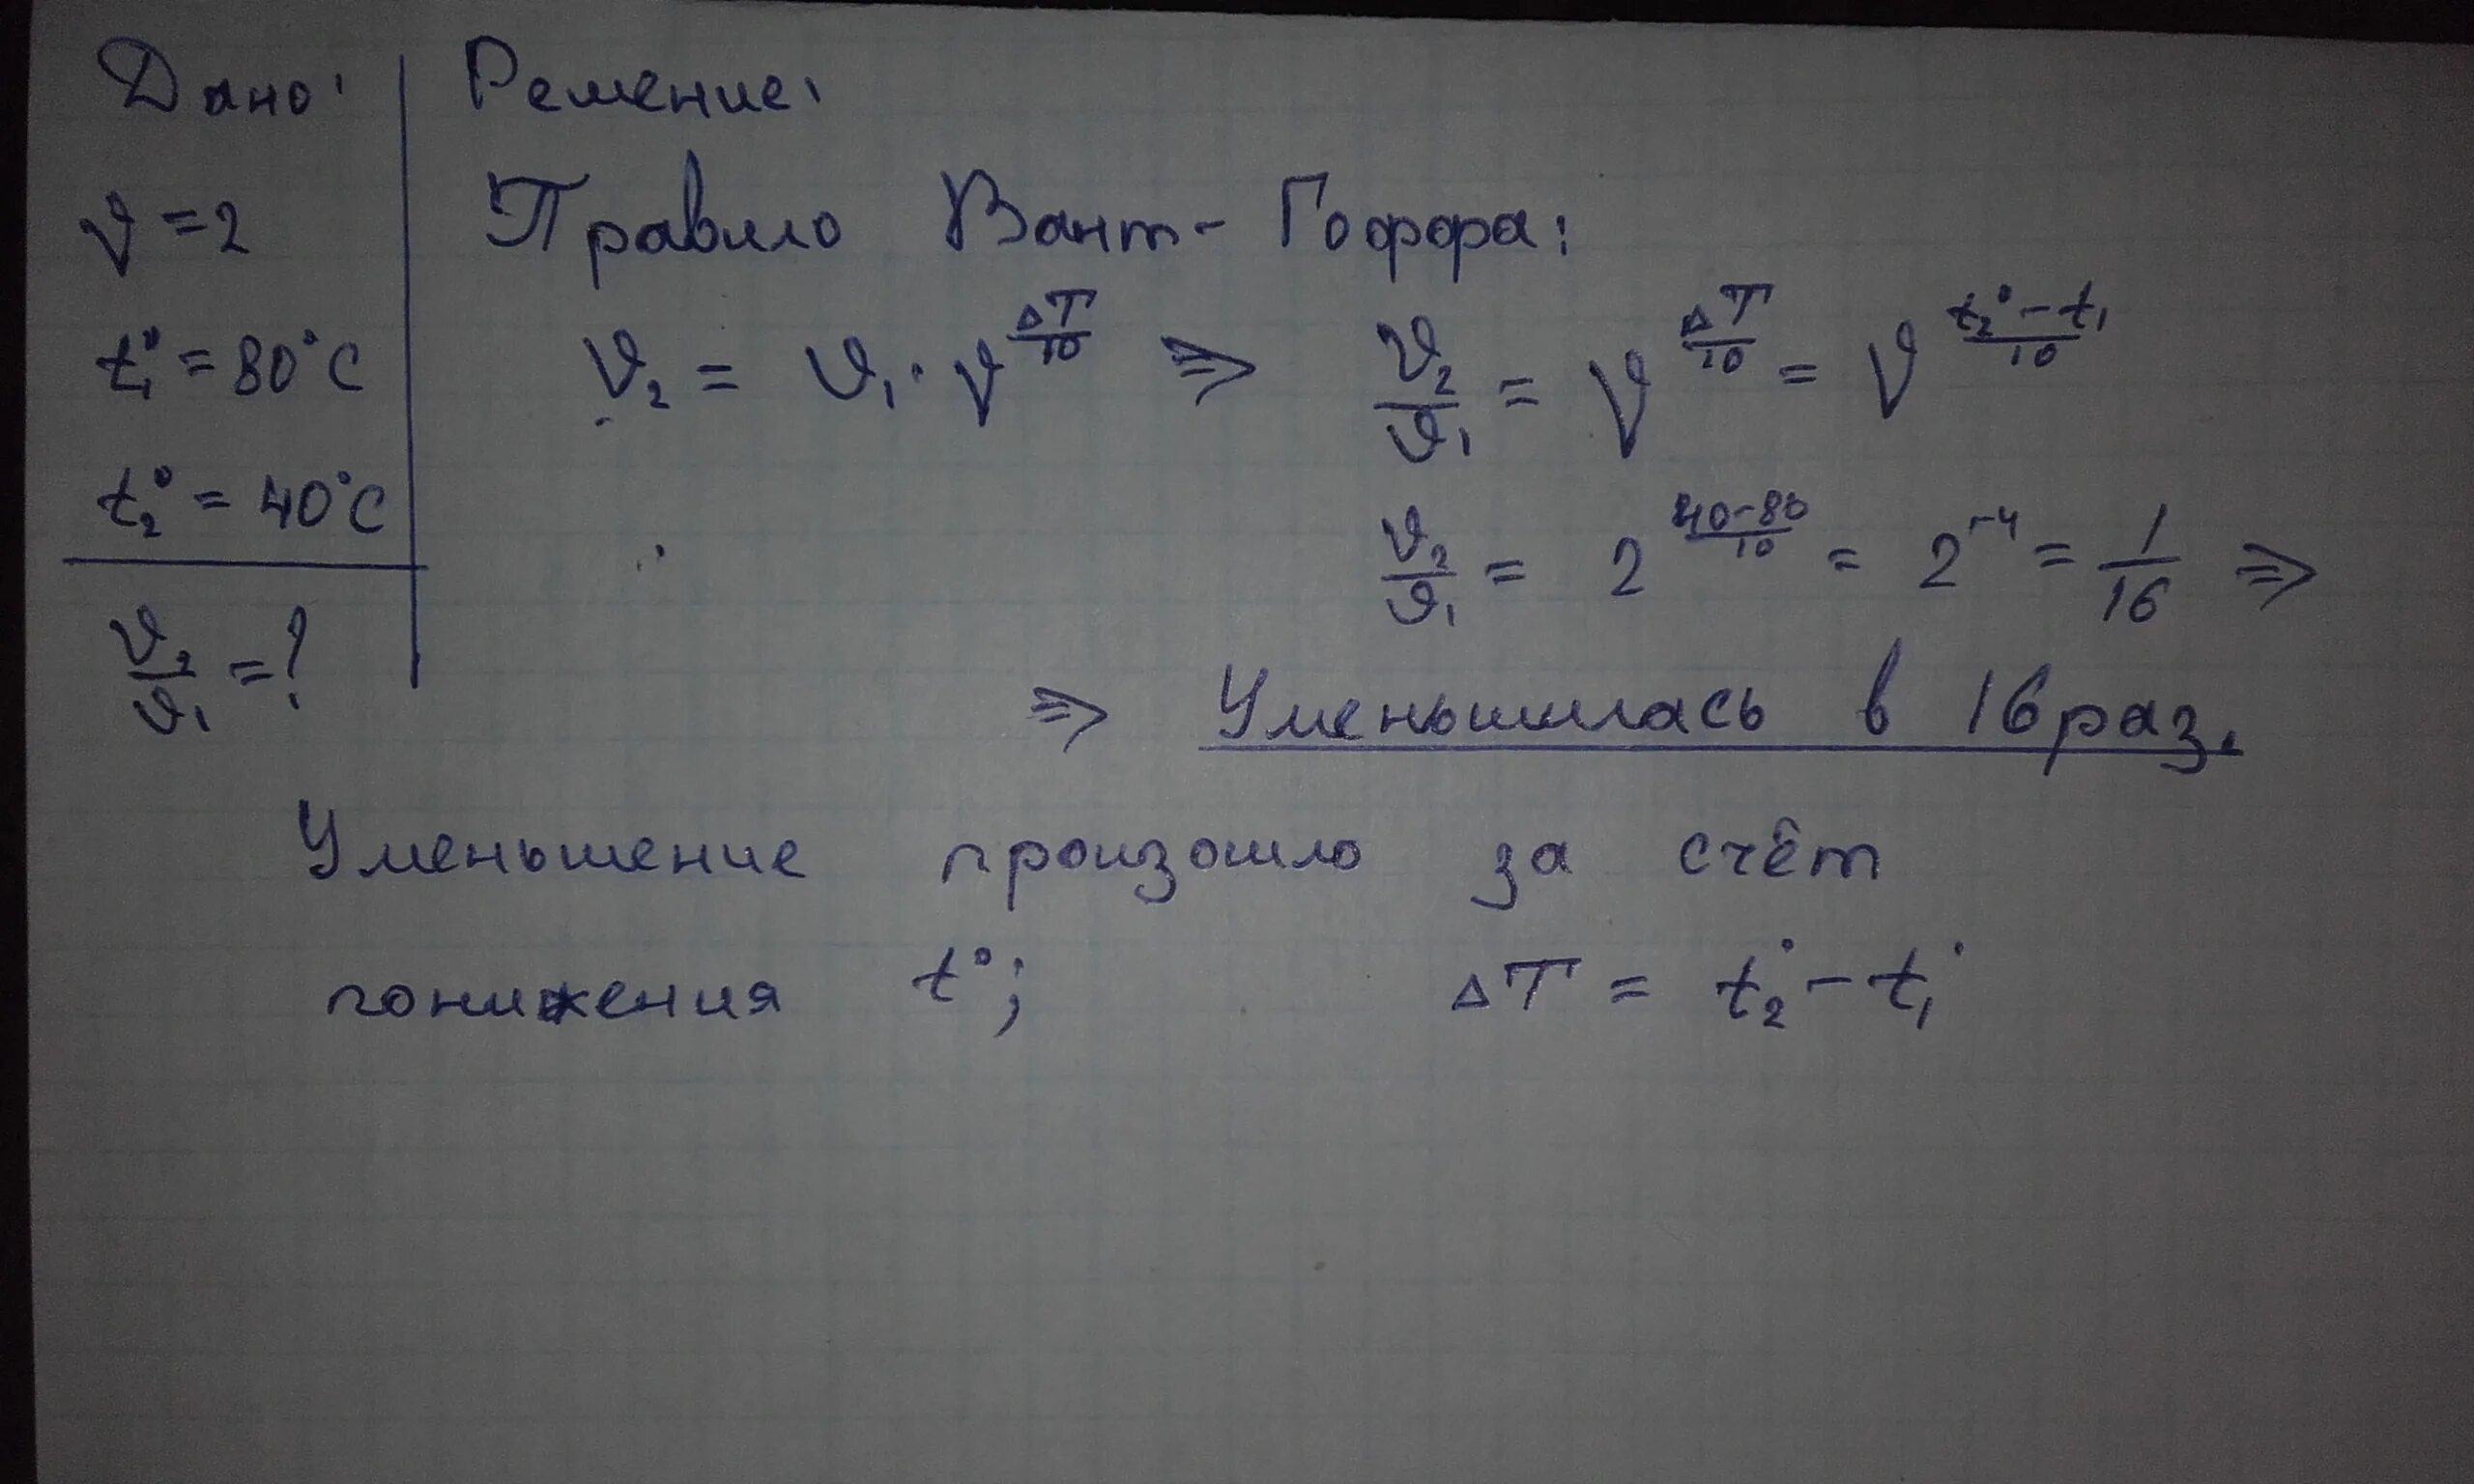 Дано:
γ = 2
t₁° = 80°C
t₂° = 40°C
ϑ₂/ϑ₁ = ?
Решение:
Правило Вант-Гоффа:
ϑ₂ = ϑ₁ · γ^(ΔT/10) ⇒ ϑ₂/ϑ₁ = γ^(ΔT/10) = γ^((t₂° - t₁)/10)
ϑ₂/ϑ₁ = 2^((40-80)/10) = 2^(-4) = 1/16 ⇒
⇒ Уменьшилась в 16 раз.
Уменьшение произошло за счёт
понижения t°; ΔT = t₂° - t₁°